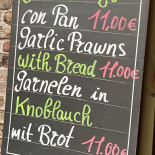 con Pan 11,00€
Garlic Prawns
with Bread 11.00€
Garnelen in
Knoblauch
mit Brot 11,00